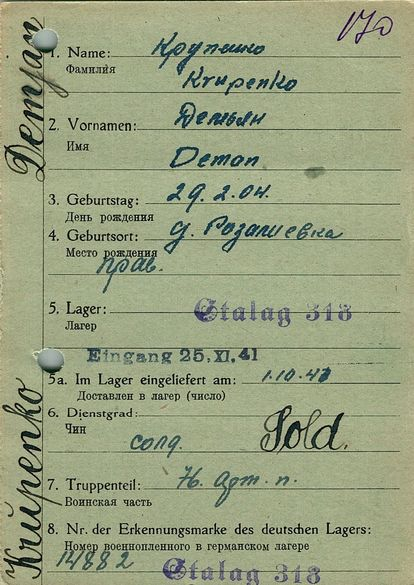 170
1. Name: Крупенко
Фамилия
Krupenko
2. Vornamen: Демьян
Имя
Deman
3. Geburtstag: 29.2.04.
День рождения
4. Geburtsort: д. Розалиевка
Место рождения
прав.
5. Lager: Stalag 318
Лагер
Eingang 25. XI. 41
5a. Im Lager eingeliefert am: 1.10.41
Доставлен в лагер (число)
6. Dienstgrad:
Чин
солд. Sold.
7. Truppenteil: Н. арт. п.
Воинская часть
8. Nr. der Erkennungsmarke des deutschen Lagers:
Номер военнопленного в германском лагере
14882 Stalag 318
Krupenko Demjan